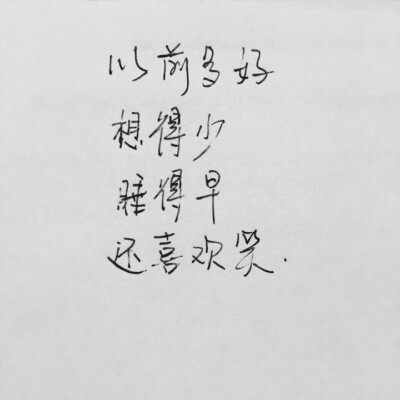 以前多好
想得少
睡得早
还喜欢笑.